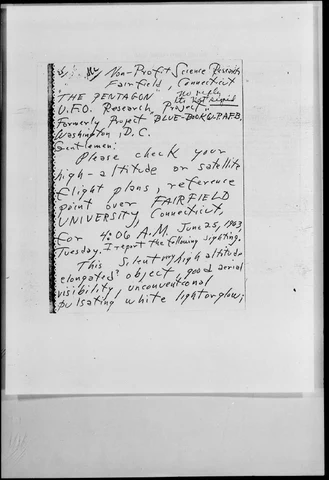 My Non-Profit Science Research
Fairfield, Connecticut
"THE PENTAGON" no reply
U.F.O. Research Project,
Formerly Project "BLUE-BOOK W.P.A.F.B.
Washington, D.C.
Gentlemen:
Please check your
high-altitude or satellite
flight plans, reference
point over FAIRFIELD
UNIVERSITY, Connecticut,
for 4:06 A.M. June 25, 1963,
Tuesday. I report the following sighting.
This silent high altitude
elongated object, good aerial
visibility, unconventional
pulsating white light or glow;